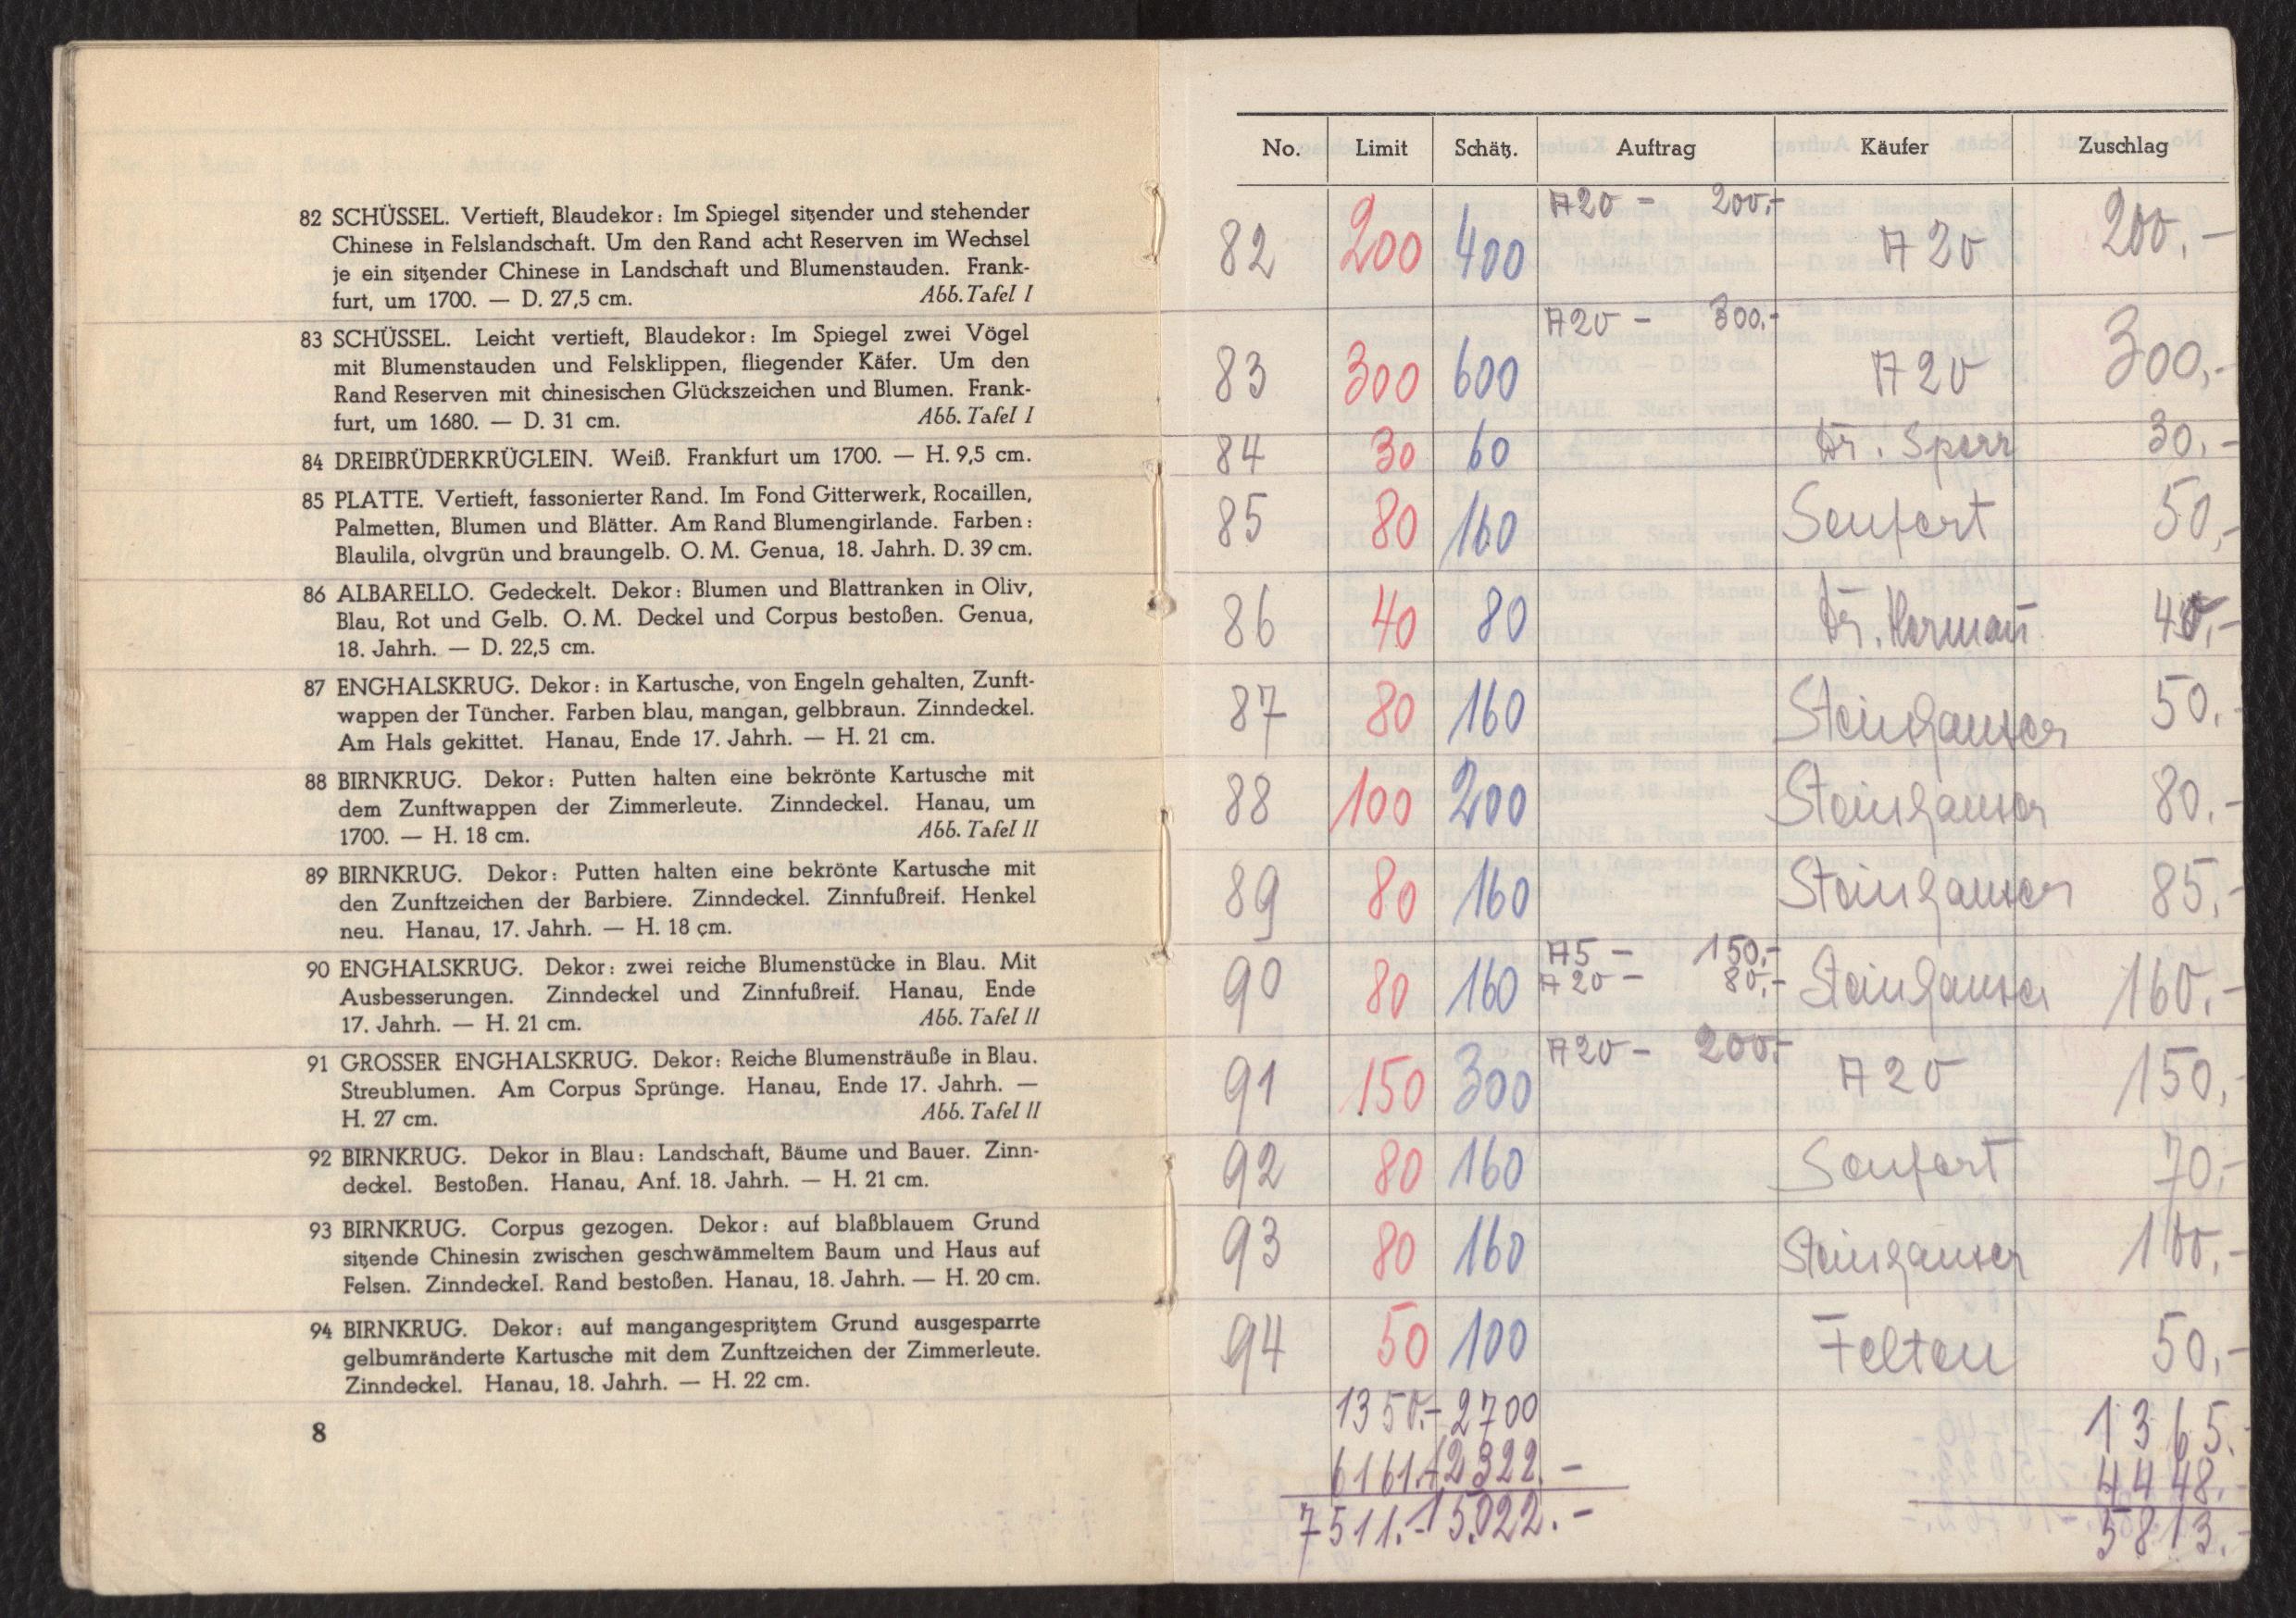 82 SCHÜSSEL. Vertieft, Blaudekor: Im Spiegel sitzender und stehender
Chinese in Felslandschaft. Um den Rand acht Reserven im Wechsel
je ein sitzender Chinese in Landschaft und Blumenstauden. Frank-
furt, um 1700. — D. 27,5 cm. Abb. Tafel I
83 SCHÜSSEL. Leicht vertieft, Blaudekor: Im Spiegel zwei Vögel
mit Blumenstauden und Felsklippen, fliegender Käfer. Um den
Rand Reserven mit chinesischen Glückszeichen und Blumen. Frank-
furt, um 1680. — D. 31 cm. Abb. Tafel I
84 DREIBRÜDERKRÜGLEIN. Weiß. Frankfurt um 1700. — H. 9,5 cm.
85 PLATTE. Vertieft, fassonierter Rand. Im Fond Gitterwerk, Rocaillen,
Palmetten, Blumen und Blätter. Am Rand Blumengirlande. Farben:
Blaulila, olvgrün und braungelb. O. M. Genua, 18. Jahrh. D. 39 cm.
86 ALBARELLO. Gedeckelt. Dekor: Blumen und Blattranken in Oliv,
Blau, Rot und Gelb. O. M. Deckel und Corpus bestoßen. Genua,
18. Jahrh. — D. 22,5 cm.
87 ENGHALSKRUG. Dekor: in Kartusche, von Engeln gehalten, Zunft-
wappen der Tüncher. Farben blau, mangan, gelbbraun. Zinndeckel.
Am Hals gekittet. Hanau, Ende 17. Jahrh. — H. 21 cm.
88 BIRNKRUG. Dekor: Putten halten eine bekrönte Kartusche mit
dem Zunftwappen der Zimmerleute. Zinndeckel. Hanau, um
1700. — H. 18 cm. Abb. Tafel II
89 BIRNKRUG. Dekor: Putten halten eine bekrönte Kartusche mit
den Zunftzeichen der Barbiere. Zinndeckel. Zinnfußreif. Henkel
neu. Hanau, 17. Jahrh. — H. 18 cm.
90 ENGHALSKRUG. Dekor: zwei reiche Blumenstücke in Blau. Mit
Ausbesserungen. Zinndeckel und Zinnfußreif. Hanau, Ende
17. Jahrh. — H. 21 cm. Abb. Tafel II
91 GROSSER ENGHALSKRUG. Dekor: Reiche Blumensträuße in Blau.
Streublumen. Am Corpus Sprünge. Hanau, Ende 17. Jahrh. —
H. 27 cm. Abb. Tafel II
92 BIRNKRUG. Dekor in Blau: Landschaft, Bäume und Bauer. Zinn-
deckel. Bestoßen. Hanau, Anf. 18. Jahrh. — H. 21 cm.
93 BIRNKRUG. Corpus gezogen. Dekor: auf blaßblauem Grund
sitzende Chinesin zwischen geschwämmeltem Baum und Haus auf
Felsen. Zinndeckel. Rand bestoßen. Hanau, 18. Jahrh. — H. 20 cm.
94 BIRNKRUG. Dekor: auf mangangespritztem Grund ausgesparrte
gelbumränderte Kartusche mit dem Zunftzeichen der Zimmerleute.
Zinndeckel. Hanau, 18. Jahrh. — H. 22 cm.
8
No. Limit Schätz. Auftrag Käufer Zuschlag
A20 — 200.-
82 200 400 A 20 200.—
A20 — 300.-
83 300 600 A 20 300,-
84 30 60 Dr. Sperr 30.-
85 80 160 Seufert 50,-
86 40 80 Dr. Hermann 40,-
87 80 160 Steinhauser 50.-
88 100 200 Steinhauser 80.-
89 80 160 Steinhauser 85,-
A5 — 150,-
A20 — 80,-
90 80 160 Steinhauser 160.-
A20 — 200.-
91 150 300 A 20 150,-
92 80 160 Seufert 70,-
93 80 160 Steinhauser 100,-
94 50 100 Felten 50,-
1350.- 2700 1365.
6161.- 12322.- 4448.-
7511.- 15.022.- 5813.-